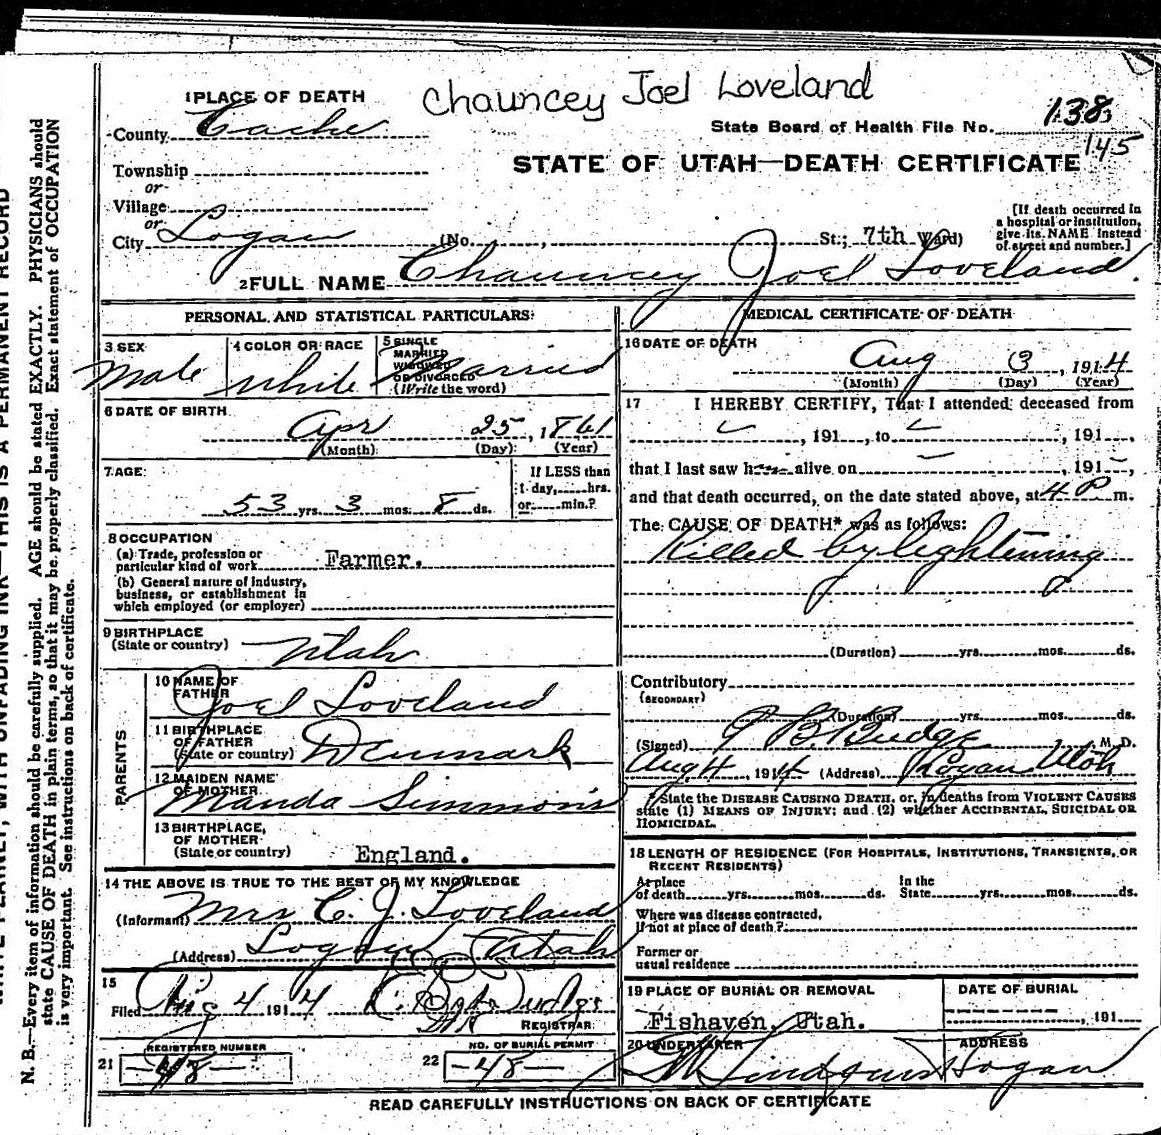 Chauncey Joel Loveland
1 PLACE OF DEATH
County Cache
State Board of Health File No. 138
145
Township
or
STATE OF UTAH—DEATH CERTIFICATE
Village
or
City Logan (No. , St.; 7th Ward)
[If death occurred in a hospital or institution, give its NAME instead of street and number.]
2 FULL NAME Chauncey Joel Loveland.
PERSONAL AND STATISTICAL PARTICULARS
3 SEX Male
4 COLOR OR RACE White
5 SINGLE MARRIED WIDOWED OR DIVORCED (Write the word) Married
6 DATE OF BIRTH
Apr 25, 1861
(Month) (Day) (Year)
7 AGE
53 yrs. 3 mos. 8 ds.
If LESS than 1 day, hrs. or min.?
8 OCCUPATION
(a) Trade, profession or particular kind of work Farmer.
(b) General nature of industry, business, or establishment in which employed (or employer)
9 BIRTHPLACE
(State or country) Utah
PARENTS
10 NAME OF FATHER Joel Loveland
11 BIRTHPLACE OF FATHER (State or country) Denmark
12 MAIDEN NAME OF MOTHER Manda Simmons
13 BIRTHPLACE OF MOTHER (State or country) England.
14 THE ABOVE IS TRUE TO THE BEST OF MY KNOWLEDGE
(Informant) Mrs C. J. Loveland
(Address) Logan Utah
15
Filed Aug 4 1914
REGISTRAR
21 REGISTERED NUMBER 48
22 NO. OF BURIAL PERMIT 48
MEDICAL CERTIFICATE OF DEATH
16 DATE OF DEATH
Aug 3, 1914
(Month) (Day) (Year)
17 I HEREBY CERTIFY, That I attended deceased from
, 191 , to , 191 ,
that I last saw h alive on , 191 ,
and that death occurred, on the date stated above, at 4 P m.
The CAUSE OF DEATH* was as follows:
Killed by lightening
(Duration) yrs. mos. ds.
Contributory
(SECONDARY)
(Duration) yrs. mos. ds.
(Signed) Budge, M. D.
Aug 4, 1914 (Address) Logan Utah
* State the DISEASE CAUSING DEATH, or, in deaths from VIOLENT CAUSES
state (1) MEANS OF INJURY; and (2) whether ACCIDENTAL, SUICIDAL OR
HOMICIDAL.
18 LENGTH OF RESIDENCE (FOR HOSPITALS, INSTITUTIONS, TRANSIENTS, OR
RECENT RESIDENTS)
At place of death yrs. mos. ds. In the State yrs. mos. ds.
Where was disease contracted, if not at place of death?
Former or usual residence
19 PLACE OF BURIAL OR REMOVAL
Fishaven, Utah.
DATE OF BURIAL
, 191
20 UNDERTAKER
ADDRESS
Logan
READ CAREFULLY INSTRUCTIONS ON BACK OF CERTIFICATE
N. B.—Every item of information should be carefully supplied. AGE should be stated EXACTLY. PHYSICIANS should
state CAUSE OF DEATH in plain terms, so that it may be properly classified. Exact statement of OCCUPATION
is very important. See instructions on back of certificate.